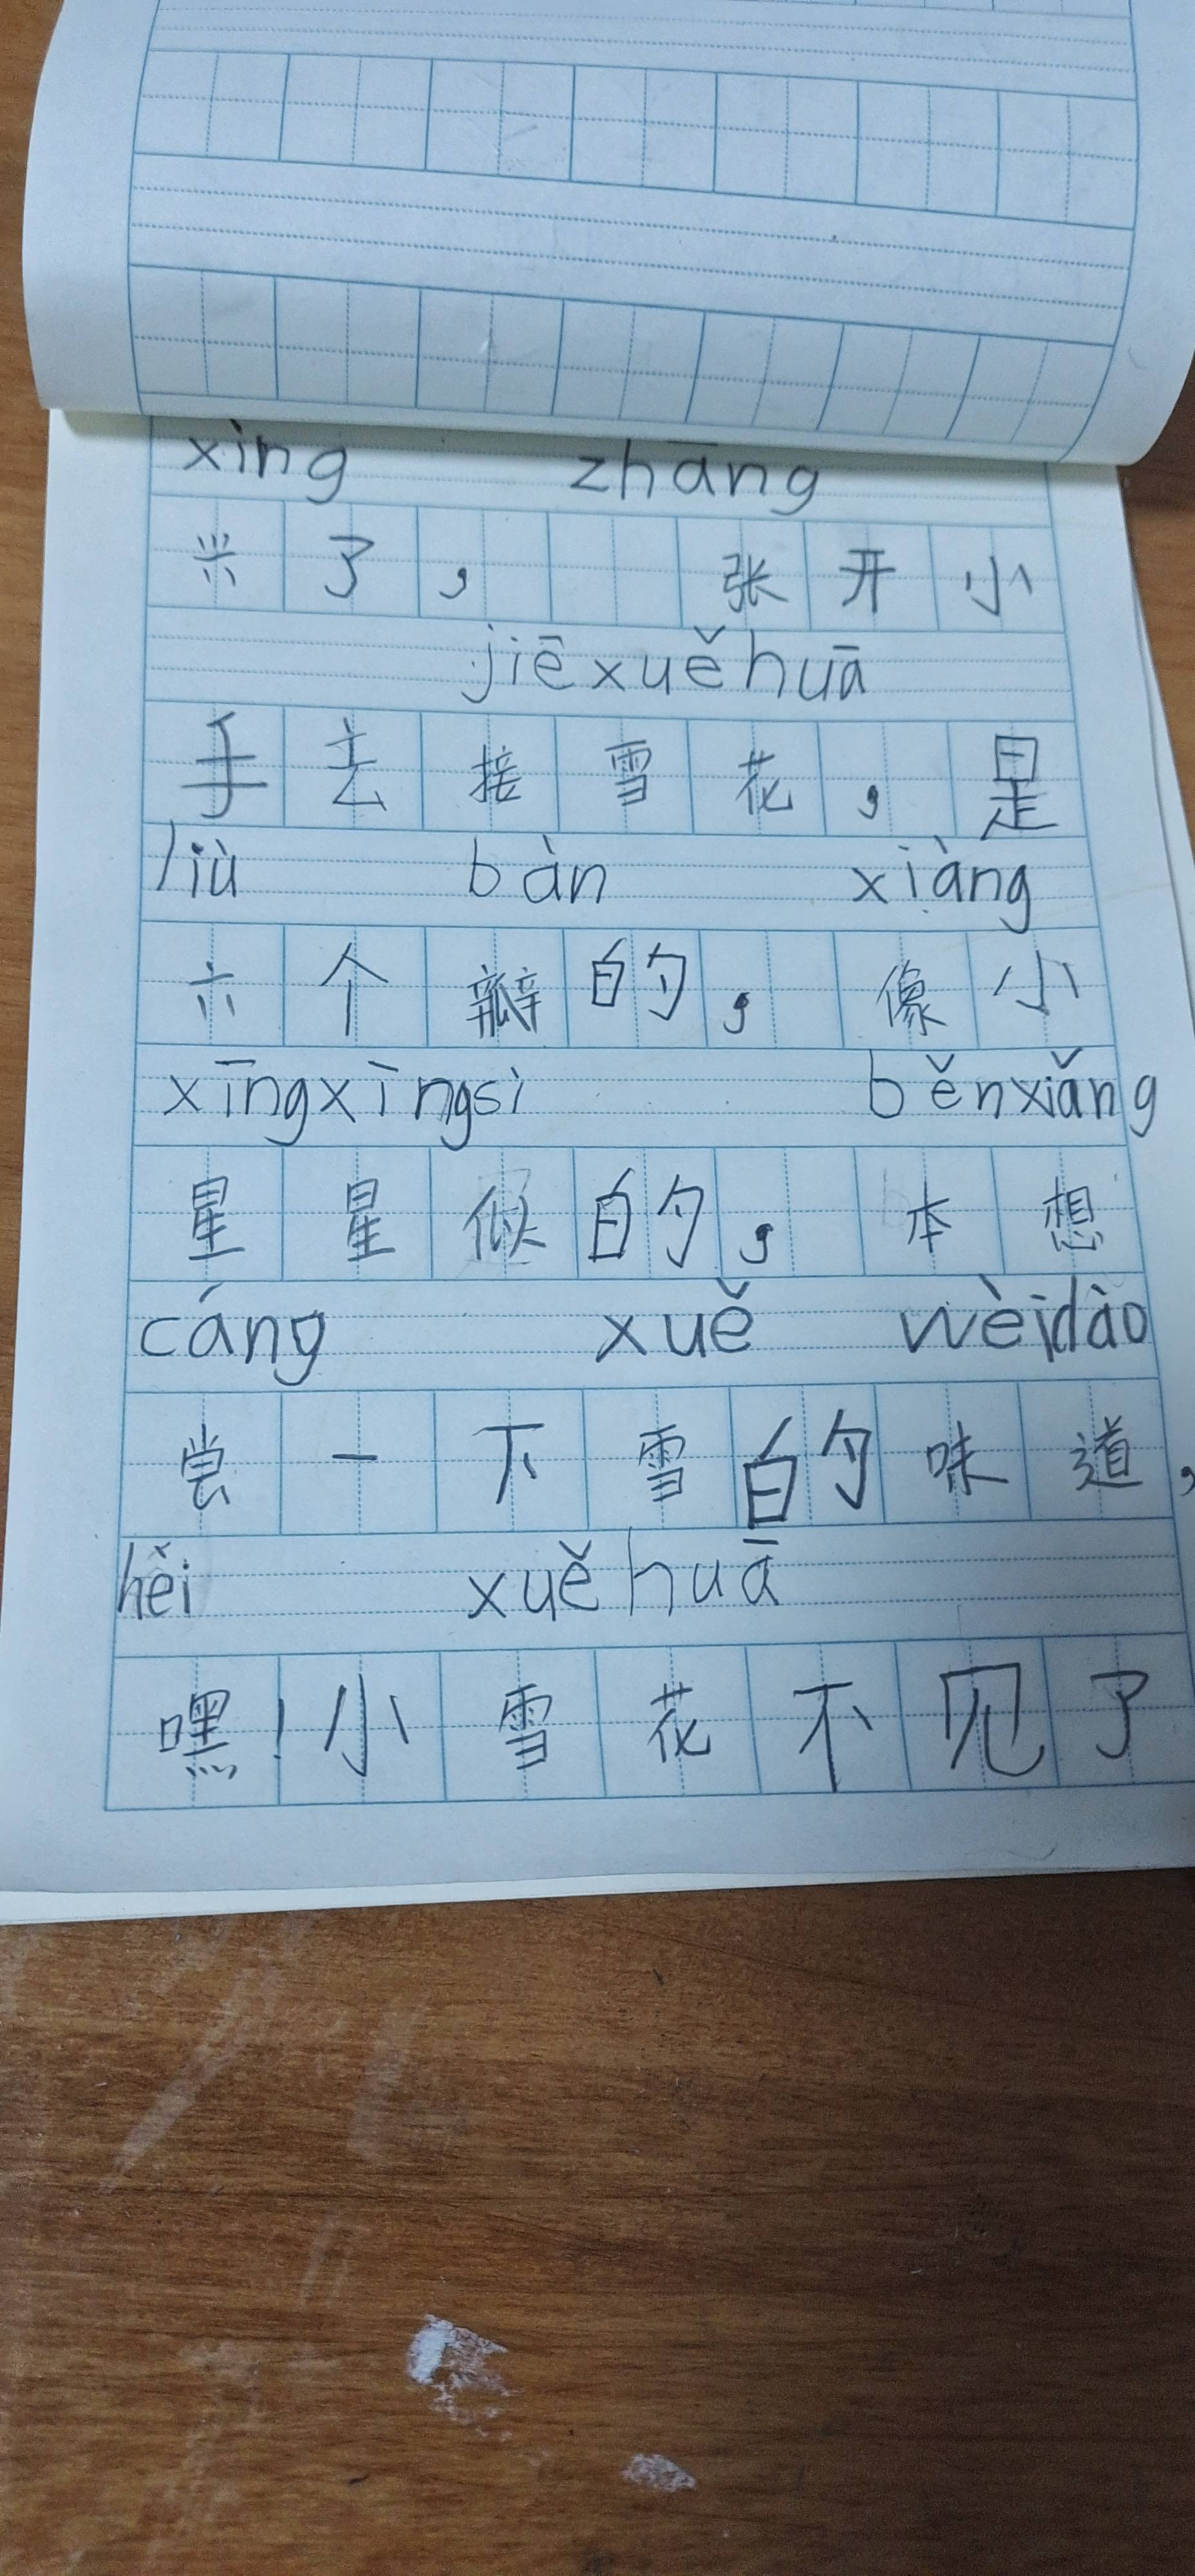 xìng zhāng
兴了，张开小
jiē xuě huā
手去接雪花，是
liù bàn xiàng
六个瓣的，像小
xīng xīng sì běn xiǎng
星星似的，本想
cáng xuě wèi dào
尝一下雪的味道，
hēi xuě huā
嘿！小雪花不见了